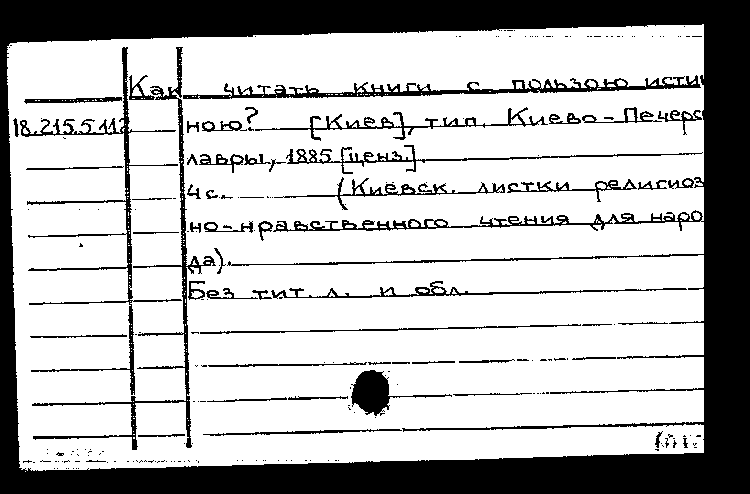 Как читать книги с пользою исти
18.215.5.112 ною? [Киев], тип. Киево-Печерс
лавры, 1885 [ценз.].
4 с. (Киевск. листки религиоз
но-нравственного чтения для наро
да).
Без тит. л. и обл.